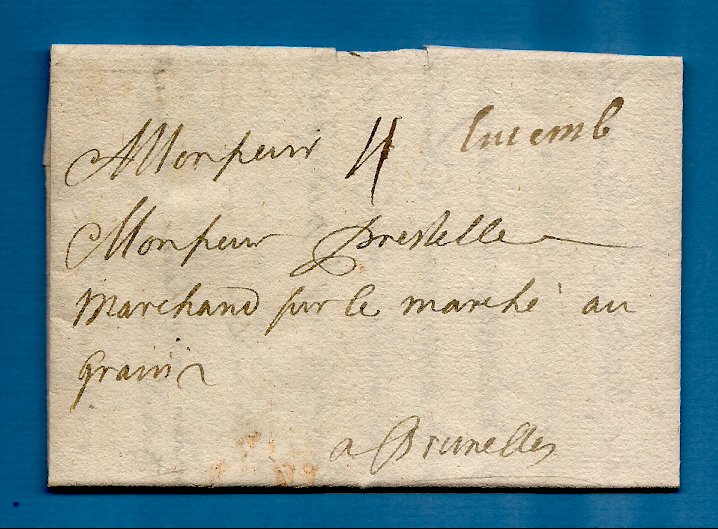 A Monsieur 4 luxemb
Monsieur prestelle
marchand sur le marché au
grains
a Bruxelles